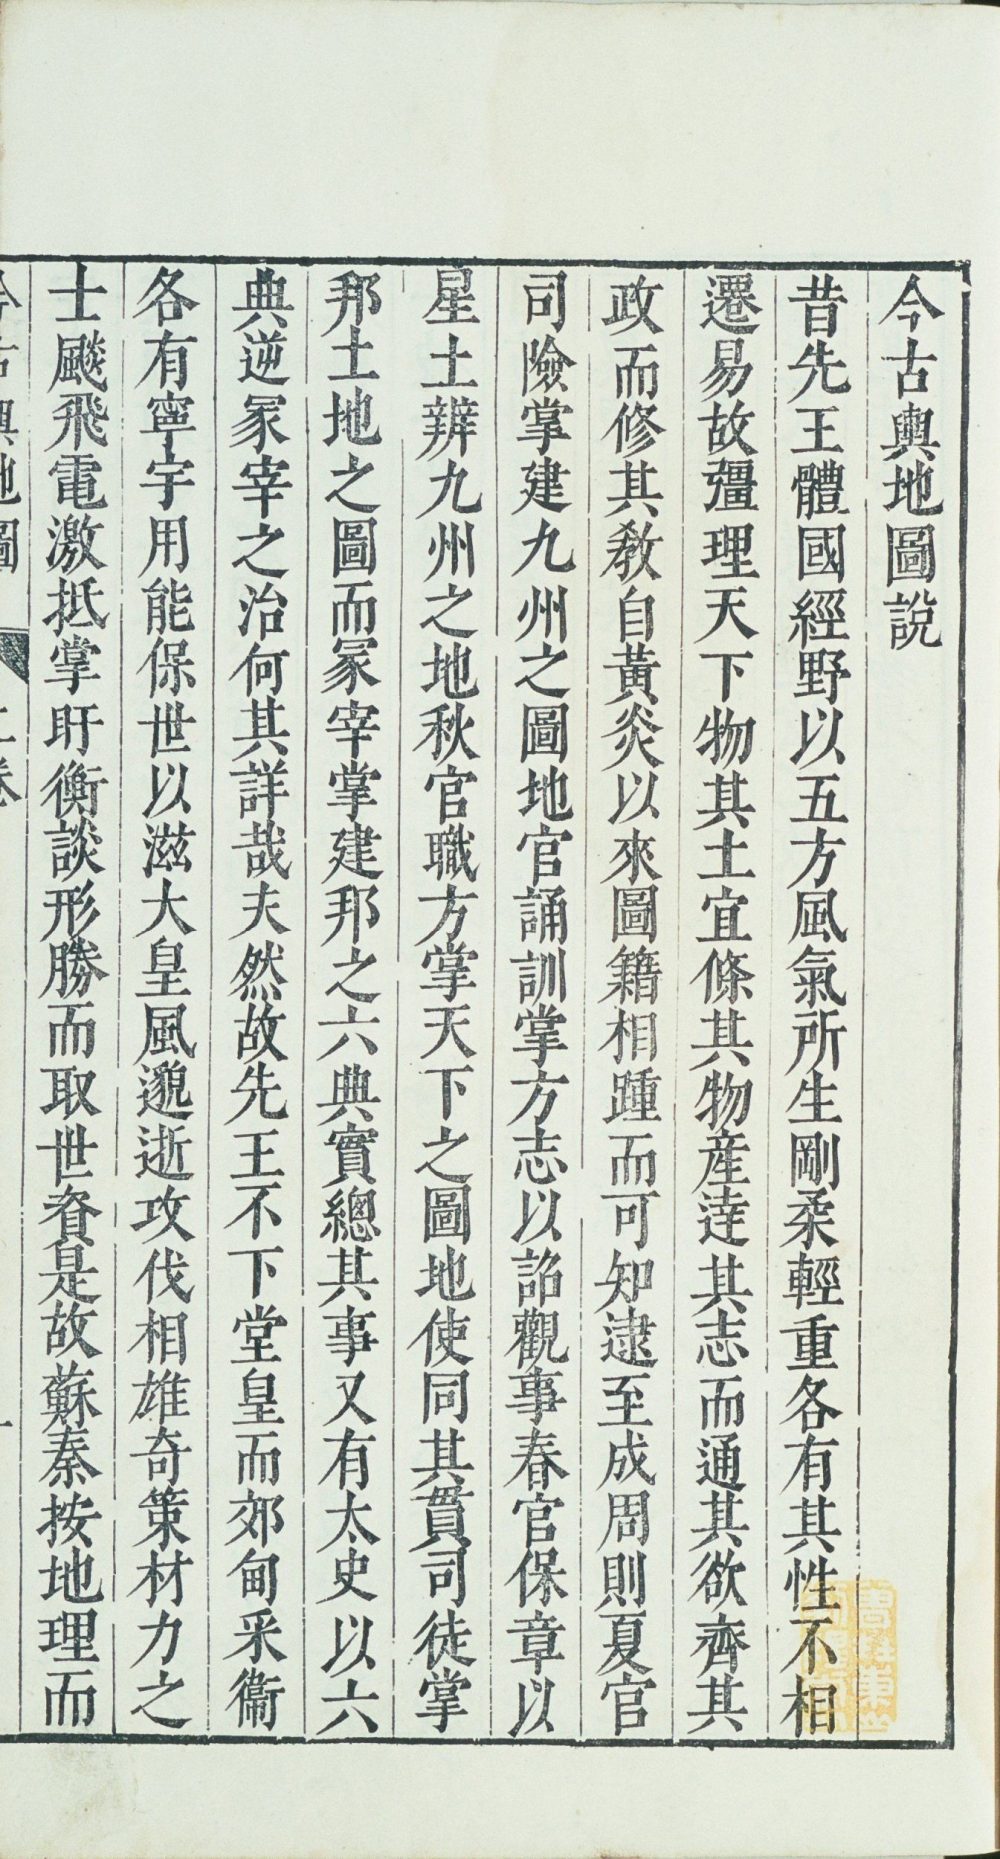 今古輿地圖說
昔先王體國經野以五方風氣所生剛柔輕重各有其性不相
遷易故彊理天下物其土宜條其物產達其志而通其欲齊其
政而修其敎自黃炎以來圖籍相踵而可知逮至成周則夏官
司險掌建九州之圖地官誦訓掌方志以詔觀事春官保章以
星土辨九州之地秋官職方掌天下之圖地使同其貫司徒掌
邦土地之圖而冢宰掌建邦之六典實總其事又有太史以六
典逆冢宰之治何其詳哉夫然故先王不下堂皇而郊甸采衞
各有寧宇用能保世以滋大皇風邈逝攻伐相雄奇策材力之
士飈飛電激抵掌盱衡談形勝而取世資是故蘇秦按地理而
今古輿地圖 上卷 一